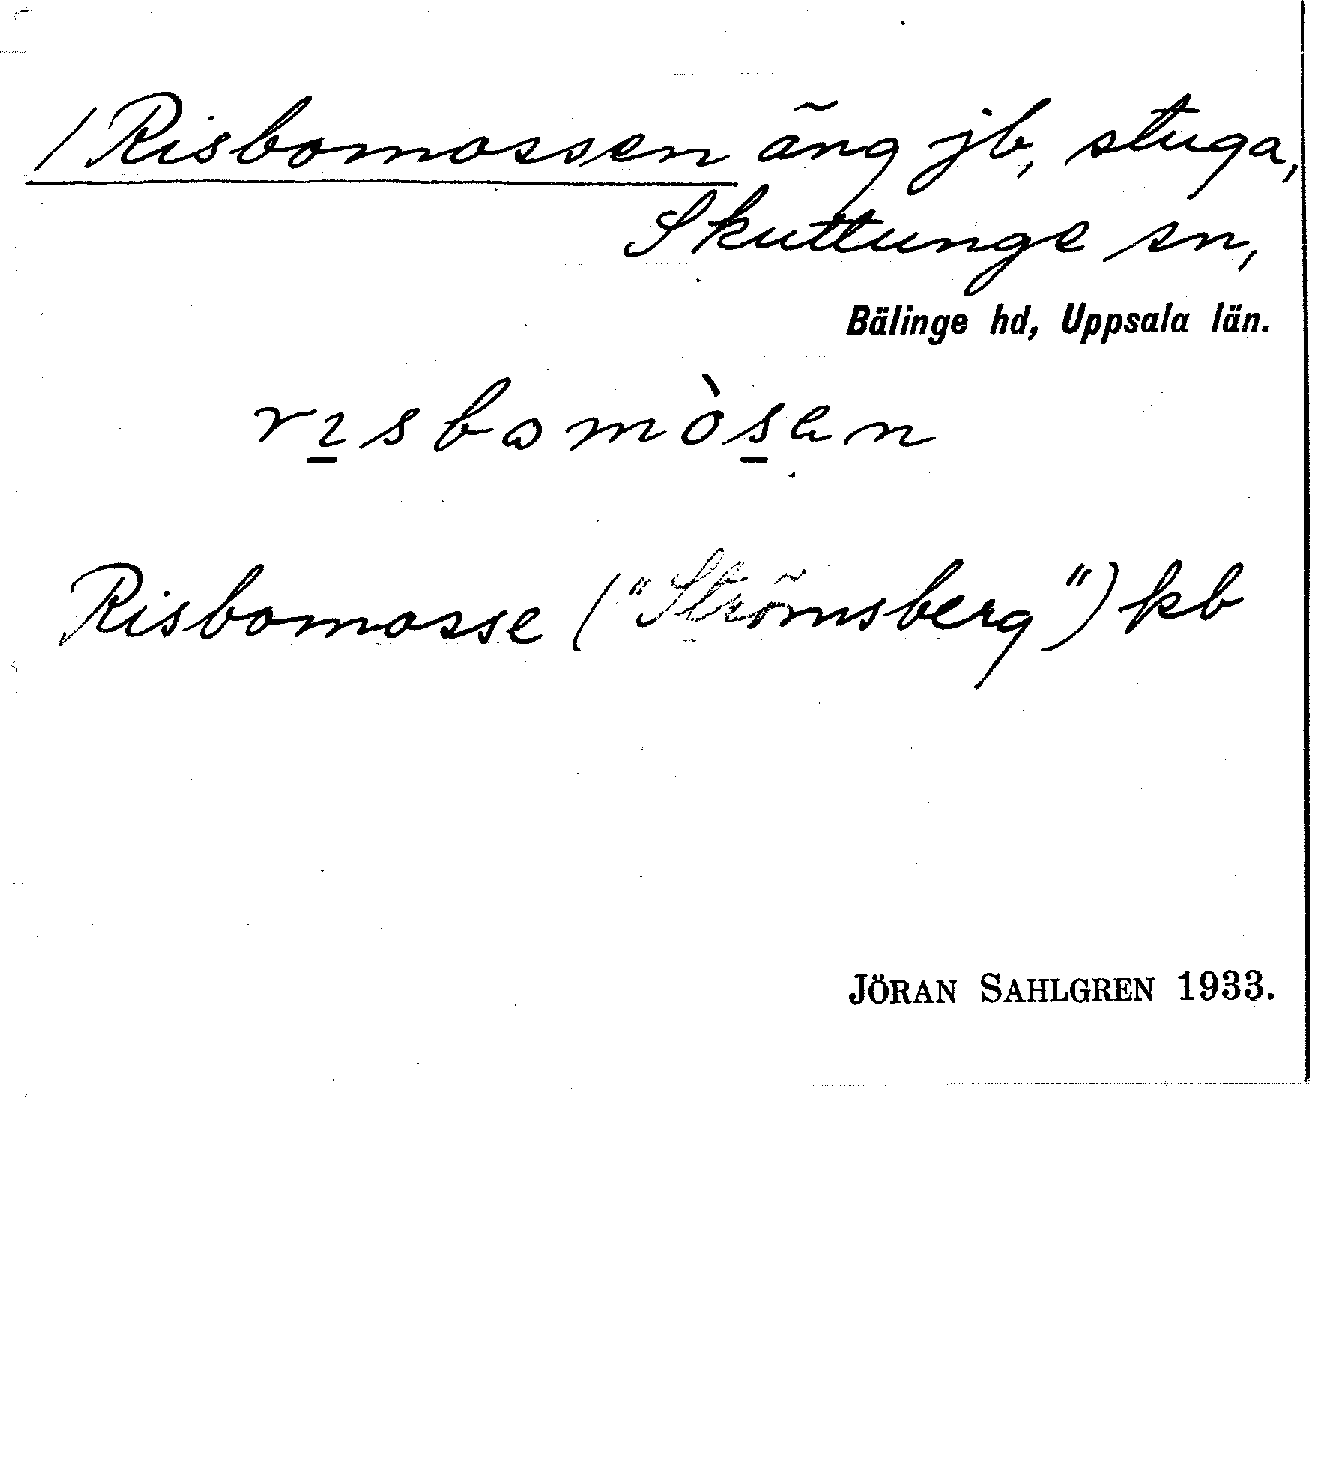 / Risbomossen äng jb, stuga,
Skuttunge sn,
Bälinge hd, Uppsala län.
rısbomòsen
Risbomosse ("Strömsberg") kb
JÖRAN SAHLGREN 1933.